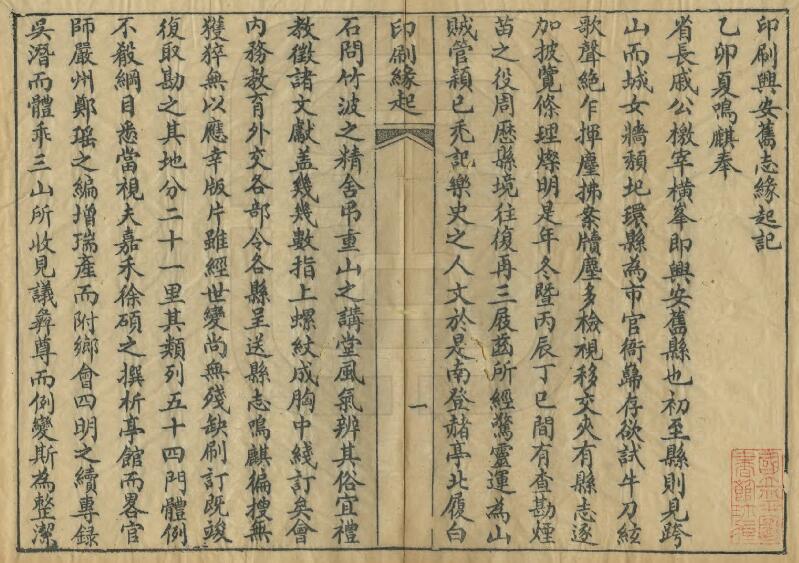 印刷興安舊志緣起記
乙卯夏鳴麒奉
省長戚公檄宰橫峯即興安舊縣也初至縣則見跨
山而城女牆頽圮環縣為市官衙巋存欲試牛刀絃
歌聲絶乍揮麈拂案牘塵多檢視移交夾有縣志逐
加披覽條理燦明是年冬暨丙辰丁巳間有查勘煙
苗之役周歷縣境往復再三屐齒所經驚靈運為山
賊管頴已禿記樂史之人文於是南登赭亭北履白
印刷緣起
一
石問竹波之精舍吊重山之講堂風氣辨其俗宜禮
教徵諸文獻盖幾幾數指上螺紋成胸中綫訂矣會
內務教育外交各部令各縣呈送縣志鳴麒徧搜無
獲猝無以應幸版片雖經世變尚無殘缺刷訂既竣
復取勘之其地分二十一里其類列五十四門體例
不殺綱目悉當視夫嘉禾徐碩之撰析亭館而畧官
師嚴州鄭瑶之編增瑞產而附鄉會四明之續專錄
吳潛而體乖三山所收見議彜尊而例變斯為整潔